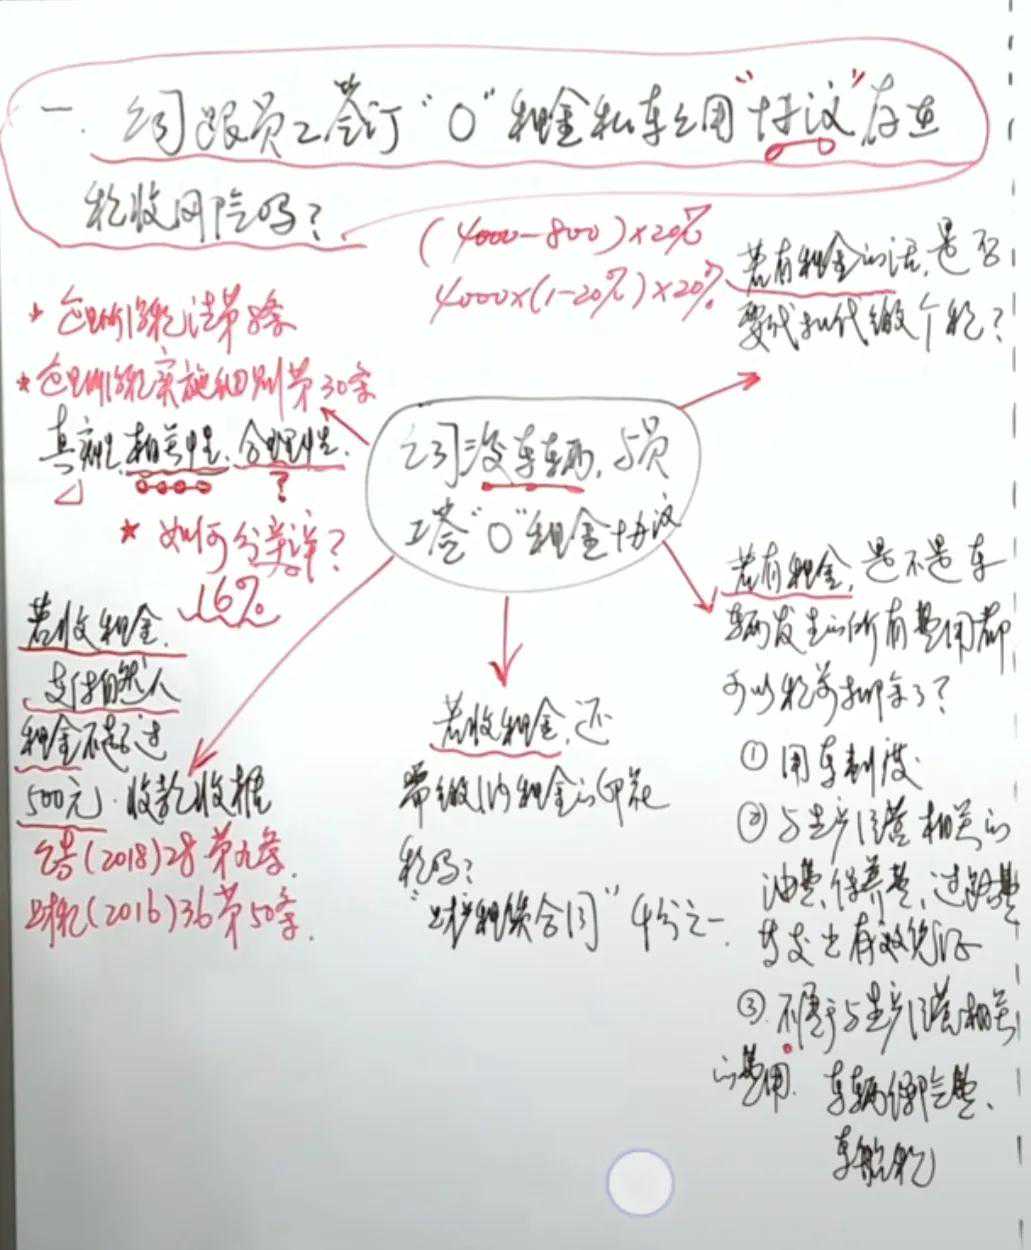 一. 公司跟员工签订“0”租金私车公用“协议”存在
税收风险吗?
(4000-800)×20%
4000×(1-20%)×20%
若有租金的话,是否
要代扣代缴个税?
* 企业所得税法第8条
* 企业所得税实施细则第30条
真实性.相关性.合理性.
?
* 如何分类详?
16%
公司没车辆,与员
工签“0”租金协议
若收租金.
支付自然人
租金不超过
500元.收款收据
公告(2018)28 第九条.
财税(2016)36第50条.
若收租金,还
需缴纳租金的印花
税吗?
“财产租赁合同”千分之一.
若有租金,是不是车
辆发生的所有费用都
可以税前扣除了?
① 用车制度
② 与生产经营相关的
油费,保养费,过路费
等支出有效凭证
③ 不属于与生产经营相关
的费用. 车辆保险费、
车船税